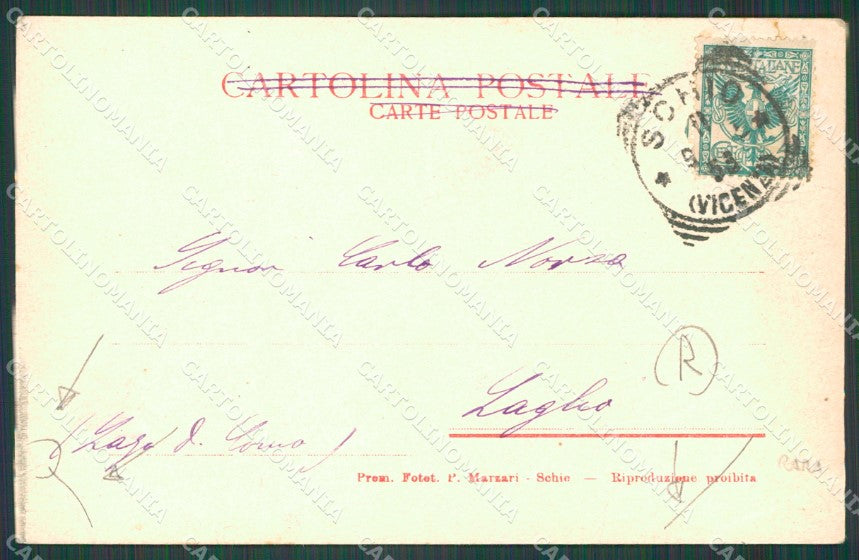 CARTOLINA POSTALE
CARTE POSTALE
ITALIANE
SCHIO
(VICENZA)
Signor Carlo Norsa
Laglio
(Lago d. Como)
R
Prem. Fotot. P. Marzari - Schio — Riproduzione proibita
RARA
CARTOLINOMANIA